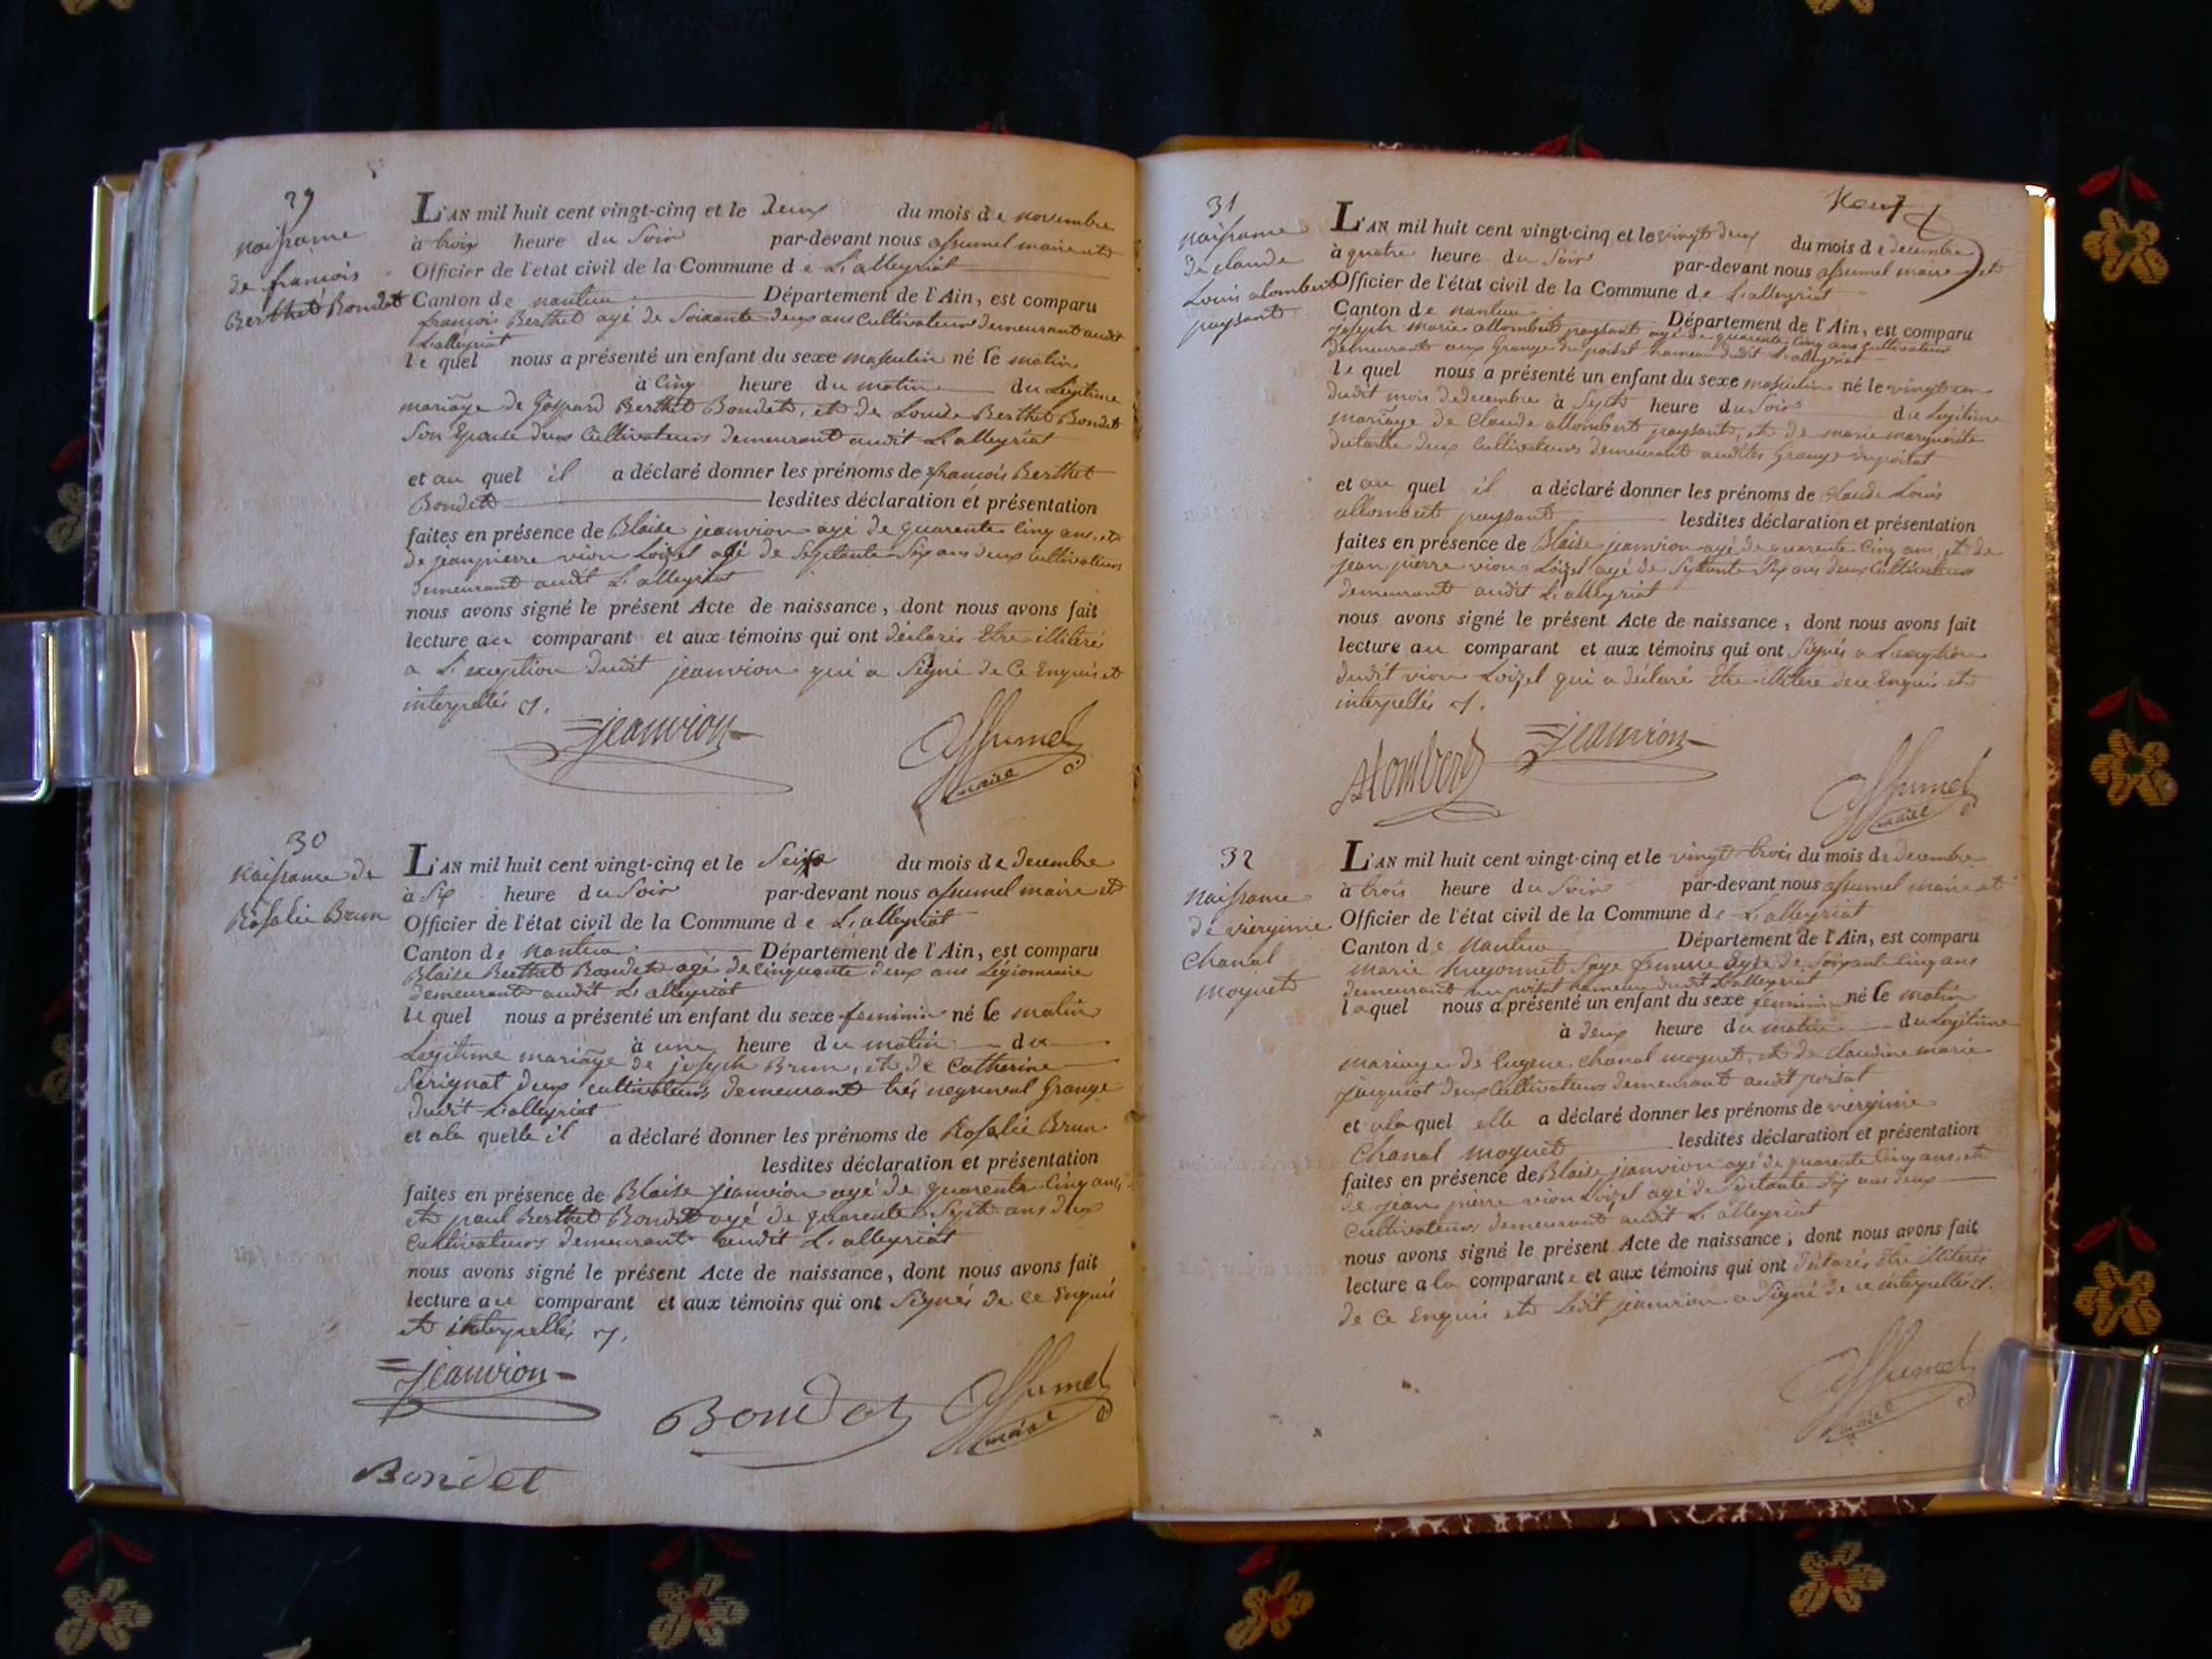 29
naissance
de francois
Berthet Bondet
L'AN mil huit cent vingt-cinq et le deux du mois de novembre
à trois heure du soir par-devant nous assumel maire et
Officier de l'etat civil de la Commune de L'alleyriat
Canton de nantua Département de l'Ain, est comparu
françois Berthet agé de soixante deux ans cultivateur demeurant audit
L'alleyriat
lequel nous a présenté un enfant du sexe masculin né le matin
à cinq heure du matin du légitime
mariage de Gaspard Berthet Bondet, et de Louise Berthet Bondet
son Epouse deux cultivateurs demeurant audit L'alleyriat
et au quel il a déclaré donner les prénoms de francois Berthet
Bondet lesdites déclaration et présentation
faites en présence de Blaise jeanvion agé de quarente cinq ans, et
de jean pierre vion Loizel agé de septante six ans deux cultivateurs
demeurant audit L'alleyriat
nous avons signé le présent Acte de naissance, dont nous avons fait
lecture au comparant et aux témoins qui ont déclarés Etre illiteré
a L'exception dudit jeanvion qui a signé de ce Enquis et
interpellés
jeanvion
assumel
maire
30
naissance de
Rosalie Brun
L'AN mil huit cent vingt-cinq et le seize du mois de decembre
à six heure du soir par-devant nous assumel maire et
Officier de l'état civil de la Commune de L'alleyriat
Canton de nantua Département de l'Ain, est comparu
Blaise Berthet Bondet agé de cinquante deux ans Légionnaire
demeurant audit L'alleyriat
lequel nous a présenté un enfant du sexe feminin né le matin
à une heure du matin du
Légitime mariage de joseph Brun, et de Catherine
Serignat deux cultivateurs demeurant très neyrewal Grange
dudit L'alleyriat
et a la quelle il a déclaré donner les prénoms de Rosalie Brun
lesdites déclaration et présentation
faites en présence de Blaise jeanvion agé de quarente cinq ans,
et paul Berthet Bondet agé de quarente sept ans deux
cultivateurs demeurant audit L'alleyriat
nous avons signé le présent Acte de naissance, dont nous avons fait
lecture au comparant et aux témoins qui ont signés de ce Enquis
et interpellés
jeanvion
Bondet
assumel
maire
Bondet
neuf
31
naissance
de claude
Louis alombert
paysant
L'AN mil huit cent vingt-cinq et le vingt deux du mois de decembre
à quatre heure du soir par-devant nous assumel maire et
Officier de l'état civil de la Commune de L'alleyriat
Canton de nantua Département de l'Ain, est comparu
joseph marie allombert paysant agé de quarente cinq ans cultivateur
demeurant aux Grange du poisat hameau dudit L'alleyriat
lequel nous a présenté un enfant du sexe masculin né le vingt un
dudit mois de decembre à sept heure du soir du Légitime
mariage de Claude allombert paysant, et de marie marguerite
dutartre deux cultivateurs demeurant audites Grange du poisat
et au quel il a déclaré donner les prénoms de claude Louis
allombert paysant lesdites déclaration et présentation
faites en présence de Blaise jeanvion agé de quarente cinq ans, et de
jean pierre vion Loizel agé de septante six ans deux cultivateurs
demeurant audit L'alleyriat
nous avons signé le présent Acte de naissance, dont nous avons fait
lecture au comparant et aux témoins qui ont signés a L'exception
dudit vion Loizel qui a déclaré Etre illitere de ce Enquis et
interpellés
alombert
jeanvion
assumel
maire
32
naissance
de viergine
Chanal
moynet
L'AN mil huit cent vingt-cinq et le vingt trois du mois de decembre
à trois heure du soir par-devant nous assumel maire et
Officier de l'état civil de la Commune de L'alleyriat
Canton de nantua Département de l'Ain, est comparu
marie hugonnet sage femme agée de soixante cinq ans
demeurant au poisat hameau dudit L'alleyriat
laquel nous a présenté un enfant du sexe feminin né le matin
à deux heure du matin du Legitime
mariage de Eugene Chanal moynet, et de claudine marie
juquiot deux cultivateurs demeurant audit poisat
et a la quel elle a déclaré donner les prénoms de viergine
Chanal moynet lesdites déclaration et présentation
faites en présence de Blaise jeanvion agé de quarente cinq ans, et
de jean pierre vion Loizel agé de septante six ans deux
cultivateurs demeurant audit L'alleyriat
nous avons signé le présent Acte de naissance, dont nous avons fait
lecture a la comparante et aux témoins qui ont déclarés Etre illiterés
de ce Enquis et Ledit jeanvion a signé de ce interpellés
assumel
maire